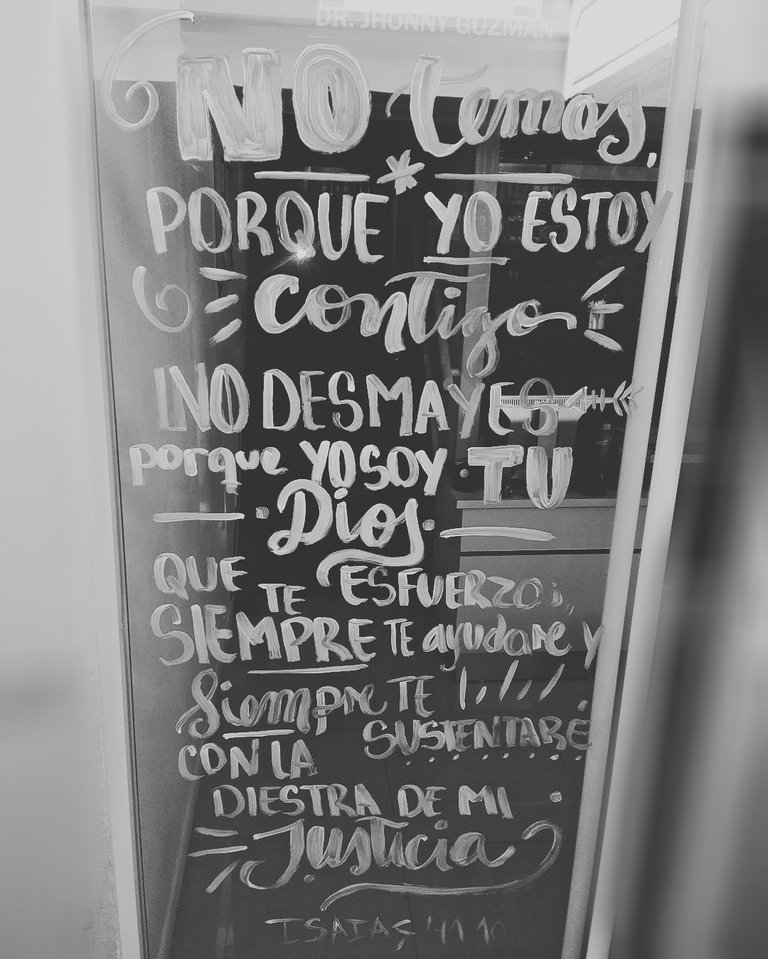 DR. JHONNY GUZMAN
NO temas,
PORQUE YO ESTOY
contigo
NO DESMAYES
porque YO SOY TU
Dios.
QUE TE ESFUERZO;
SIEMPRE TE ayudaRe y
Siempre TE
SUSTENTARÉ
CON LA
DIESTRA DE MI
Justicia
ISAIAS 41.10